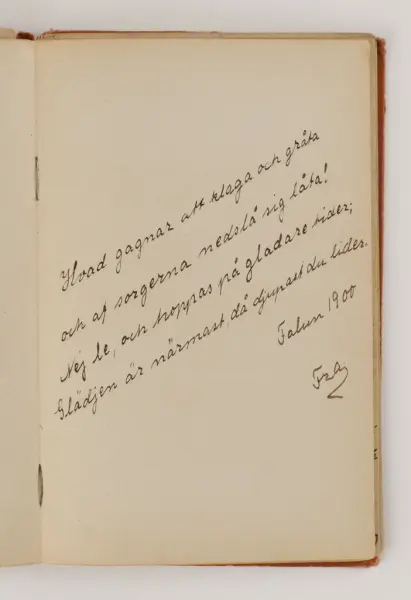 Hvad gagnar att klaga och gråta
och af sorgerna nedslå sig låta!
Nej le, och hoppas på gladare tider;
Glädjen är närmast, då djupast du lider.
Falun 1900